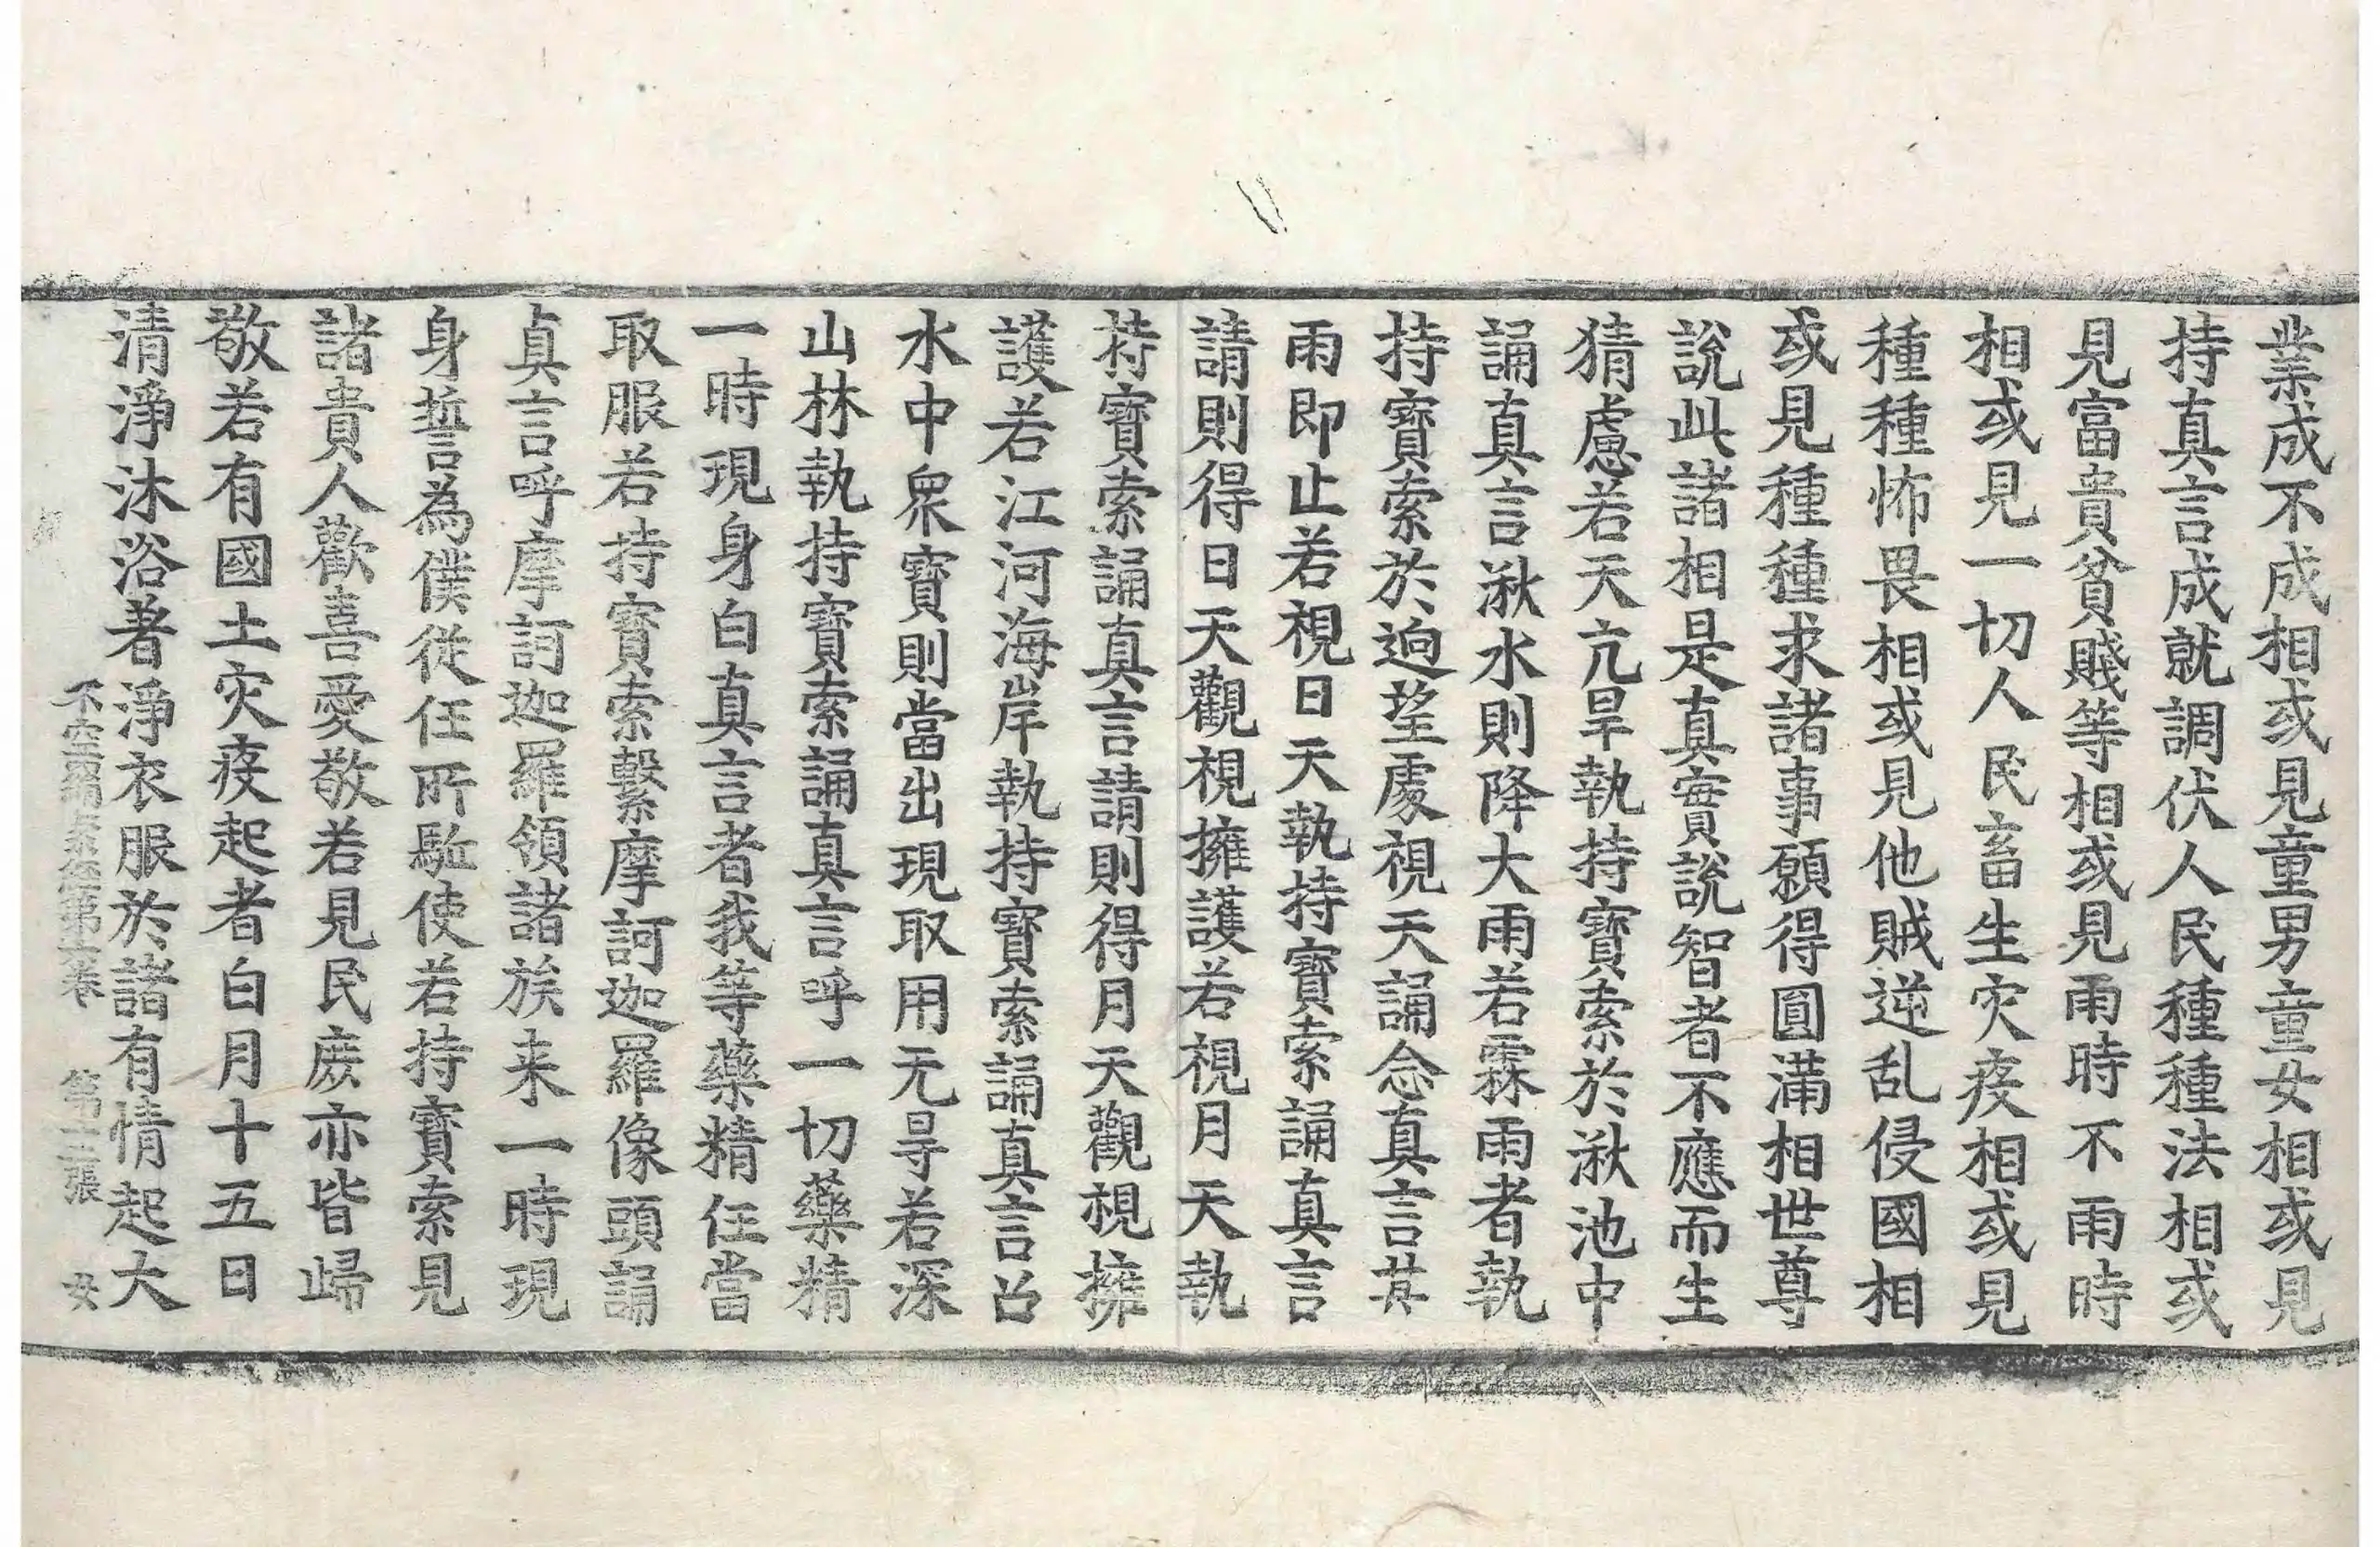 業成不成相或見童男童女相或見
持真言成就調伏人民種種法相或
見富貴貧賤等相或見雨時不雨時
相或見一切人民畜生灾疫相或見
種種怖畏相或見他賊逆乱侵國相
或見種種求諸事願得圓滿相世尊
說此諸相是真實說智者不應而生
猜慮若天亢旱執持寶索於湫池中
誦真言湫水則降大雨若霖雨者執
持寶索於逈望處視天誦念真言其
雨即止若視日天執持寶索誦真言
請則得日天觀視擁護若視月天執
持寶索誦真言請則得月天觀視擁
護若江河海岸執持寶索誦真言召
水中衆寶則當出現取用无㝵若深
山林執持寶索誦真言呼一切藥精
一時現身白真言者我等藥精任當
取服若持寶索繫摩訶迦羅像頭誦
真言呼摩訶迦羅領諸族来一時現
身誓為僕從任所駈使若持寶索見
諸貴人歡喜愛敬若見民庶亦皆歸
敬若有國土灾疫起者白月十五日
清淨沐浴著淨衣服於諸有情起大
不空羂索經第 卷 第 張 女